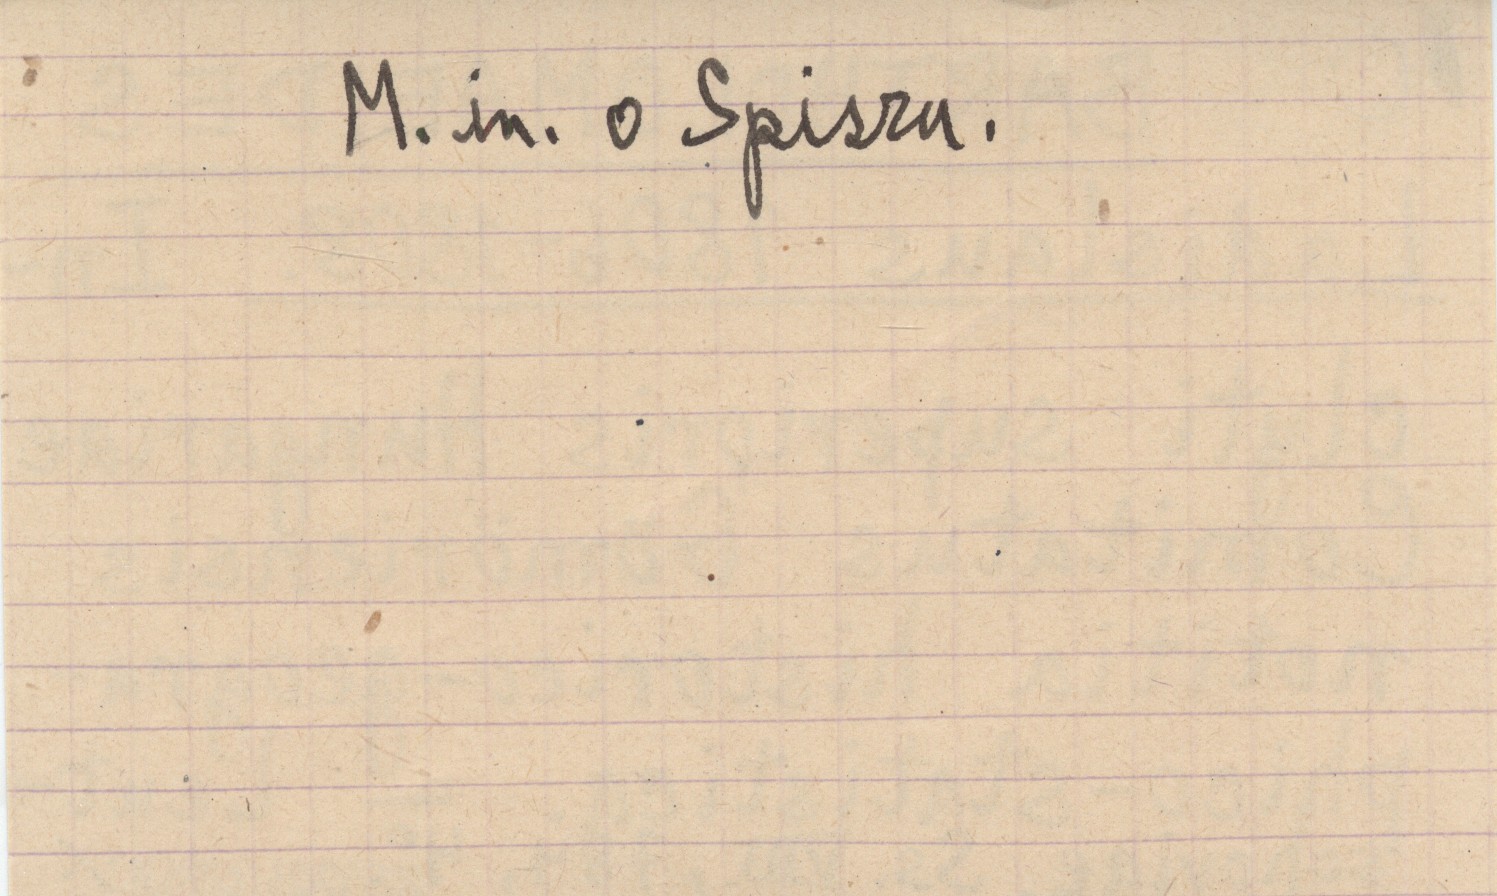 M. in. o Spiszu.